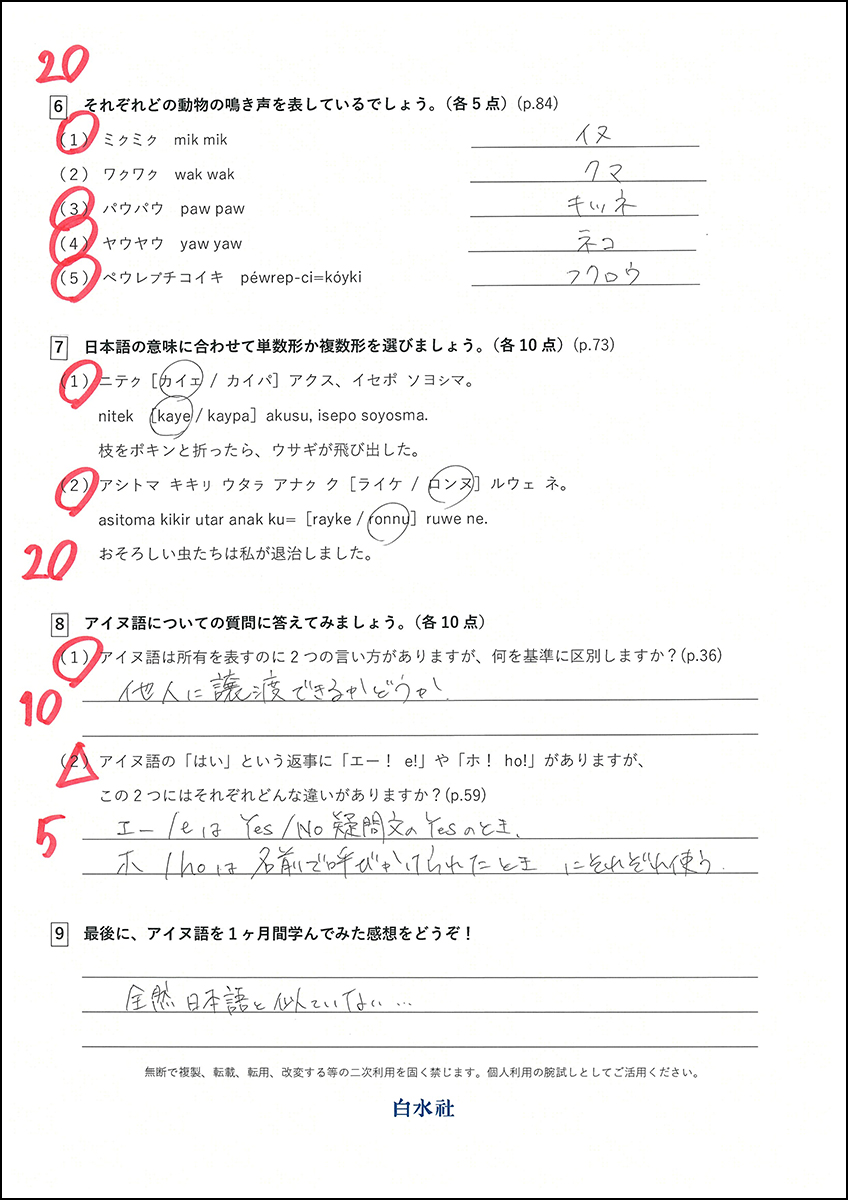 20
6 それぞれどの動物の鳴き声を表しているでしょう。（各5点）(p.84)
（1） ミㇰミㇰ mik mik イヌ
（2） ワㇰワㇰ wak wak クマ
（3） パウパウ paw paw キツネ
（4） ヤウヤウ yaw yaw ネコ
（5） ペウレㇷ゚チコイキ péwrep-ci=kóyki フクロウ
7 日本語の意味に合わせて単数形か複数形を選びましょう。（各10点）(p.73)
（1） ニテㇰ［カイェ / カイパ］アクス、イセポ ソヨシマ。
nitek ［kaye / kaypa］akusu, isepo soyosma.
枝をボキンと折ったら、ウサギが飛び出した。
（2） アシトマ キキㇼ ウタㇻ アナㇰ ク［ライケ / ロンヌ］ルウェ ネ。
asitoma kikir utar anak ku=［rayke / ronnu］ruwe ne.
20 おそろしい虫たちは私が退治しました。
8 アイヌ語についての質問に答えてみましょう。（各10点）
（1） アイヌ語は所有を表すのに2つの言い方がありますが、何を基準に区別しますか？(p.36)
10 他人に譲渡できるかどうか.
（2） アイヌ語の「はい」という返事に「エー！ e!」や「ホ！ ho!」がありますが、
この2つにはそれぞれどんな違いがありますか？(p.59)
5 エー/eは Yes/No疑問文のYesのとき、
ホ/hoは名前で呼びかけられたとき にそれぞれ使う.
9 最後に、アイヌ語を1ヶ月間学んでみた感想をどうぞ！
全然日本語と似ていない…
無断で複製、転載、転用、改変する等の二次利用を固く禁じます。個人利用の腕試しとしてご活用ください。
白水社